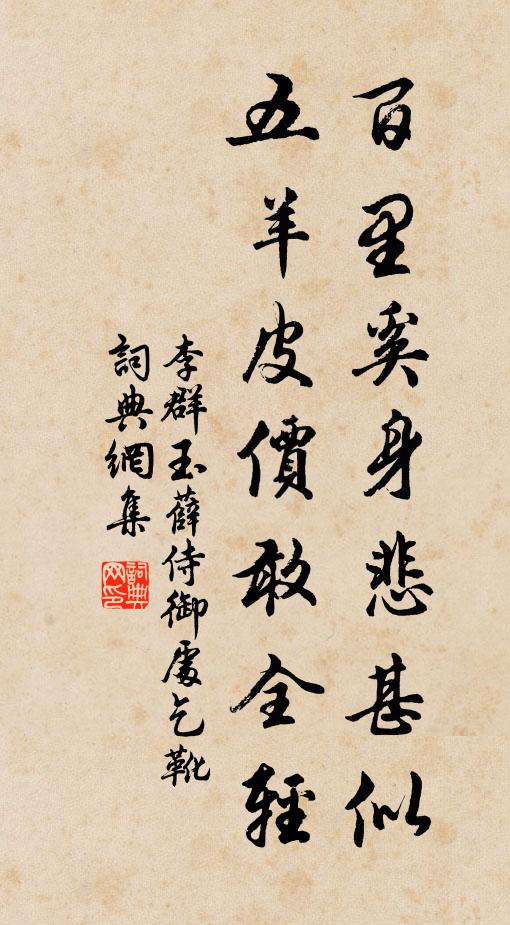 百里奚身悲甚似
五羊皮價敢全輕
李群玉薛侍御處乞靴
詞典網集
詞典
网印